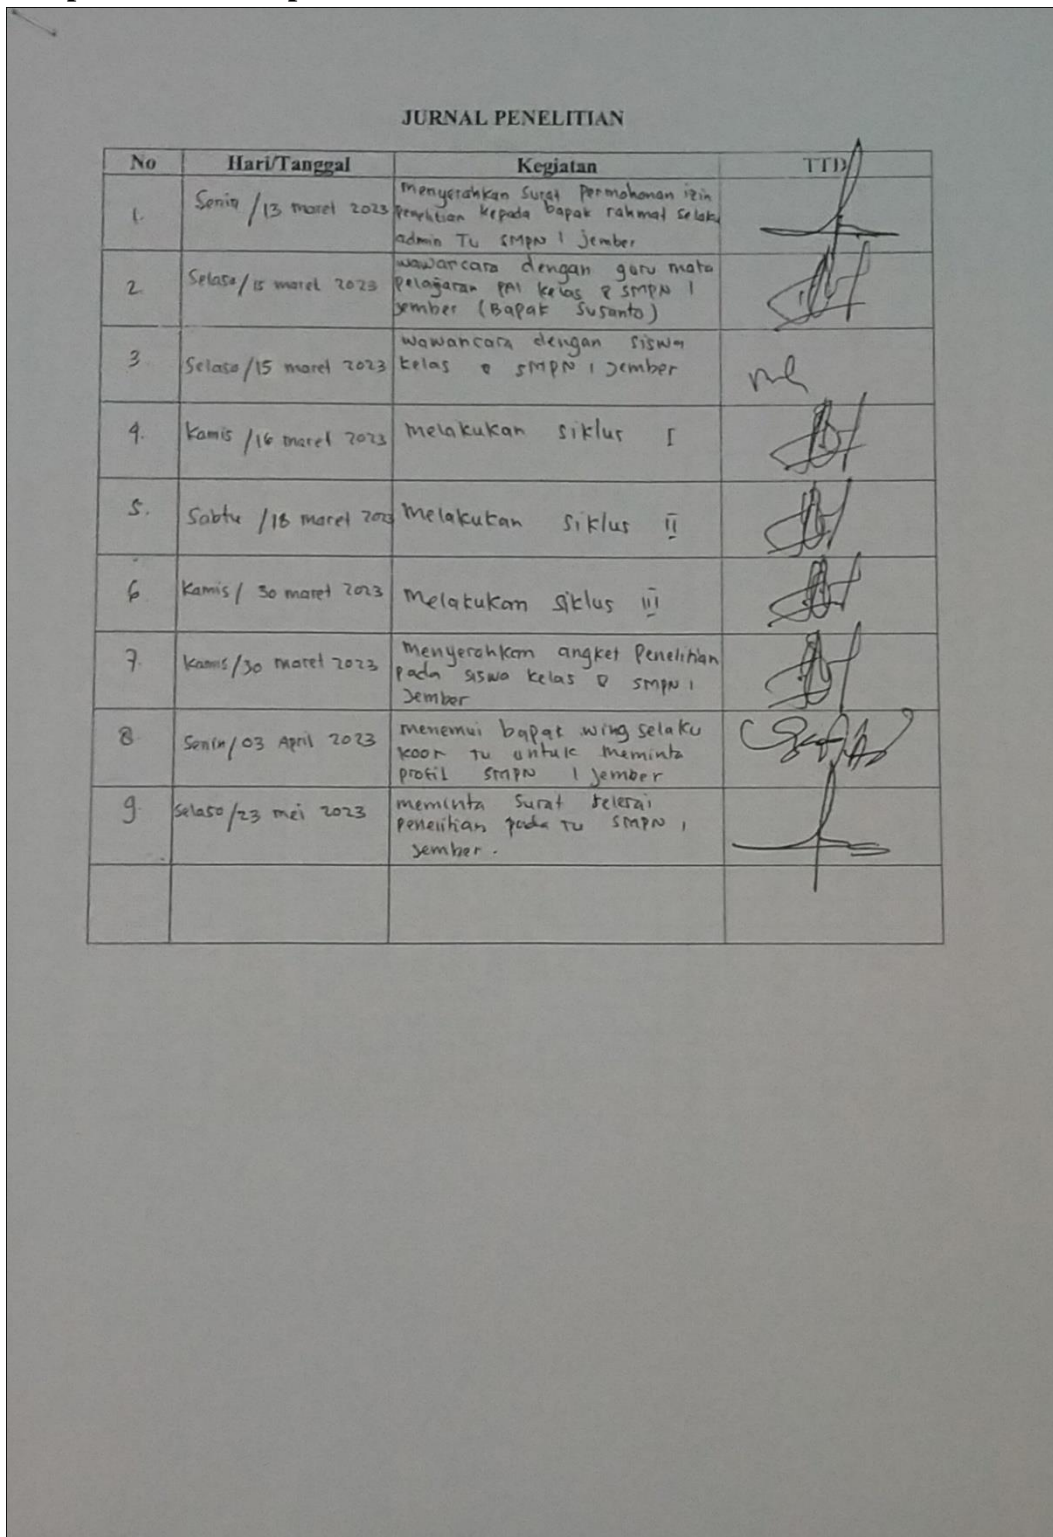 JURNAL PENELITIAN
No Hari/Tanggal Kegiatan TTD
1. Senin /13 maret 2023 menyerahkan surat permohonan izin
penelitian kepada bapak rahmat selaku
admin TU SMPN 1 jember
2. Selasa/15 maret 2023 wawancara dengan guru mata
pelajaran PAI kelas 8 SMPN 1
jember (Bapak Susanto)
3 Selasa/15 maret 2023 wawancara dengan siswa
kelas 8 SMPN 1 Jember
4. Kamis /16 maret 2023 melakukan siklus I
5. Sabtu /18 maret 2023 melakukan siklus II
6 Kamis/ 30 maret 2023 melakukan siklus III
7. Kamis/30 maret 2023 menyerahkan angket penelitian
pada siswa kelas 8 SMPN 1
Jember
8 Senin/03 April 2023 menemui bapak wing selaku
koor TU untuk meminta
profil SMPN 1 jember
9. Selasa/23 mei 2023 meminta surat selesai
penelitian pada TU SMPN 1
Jember.